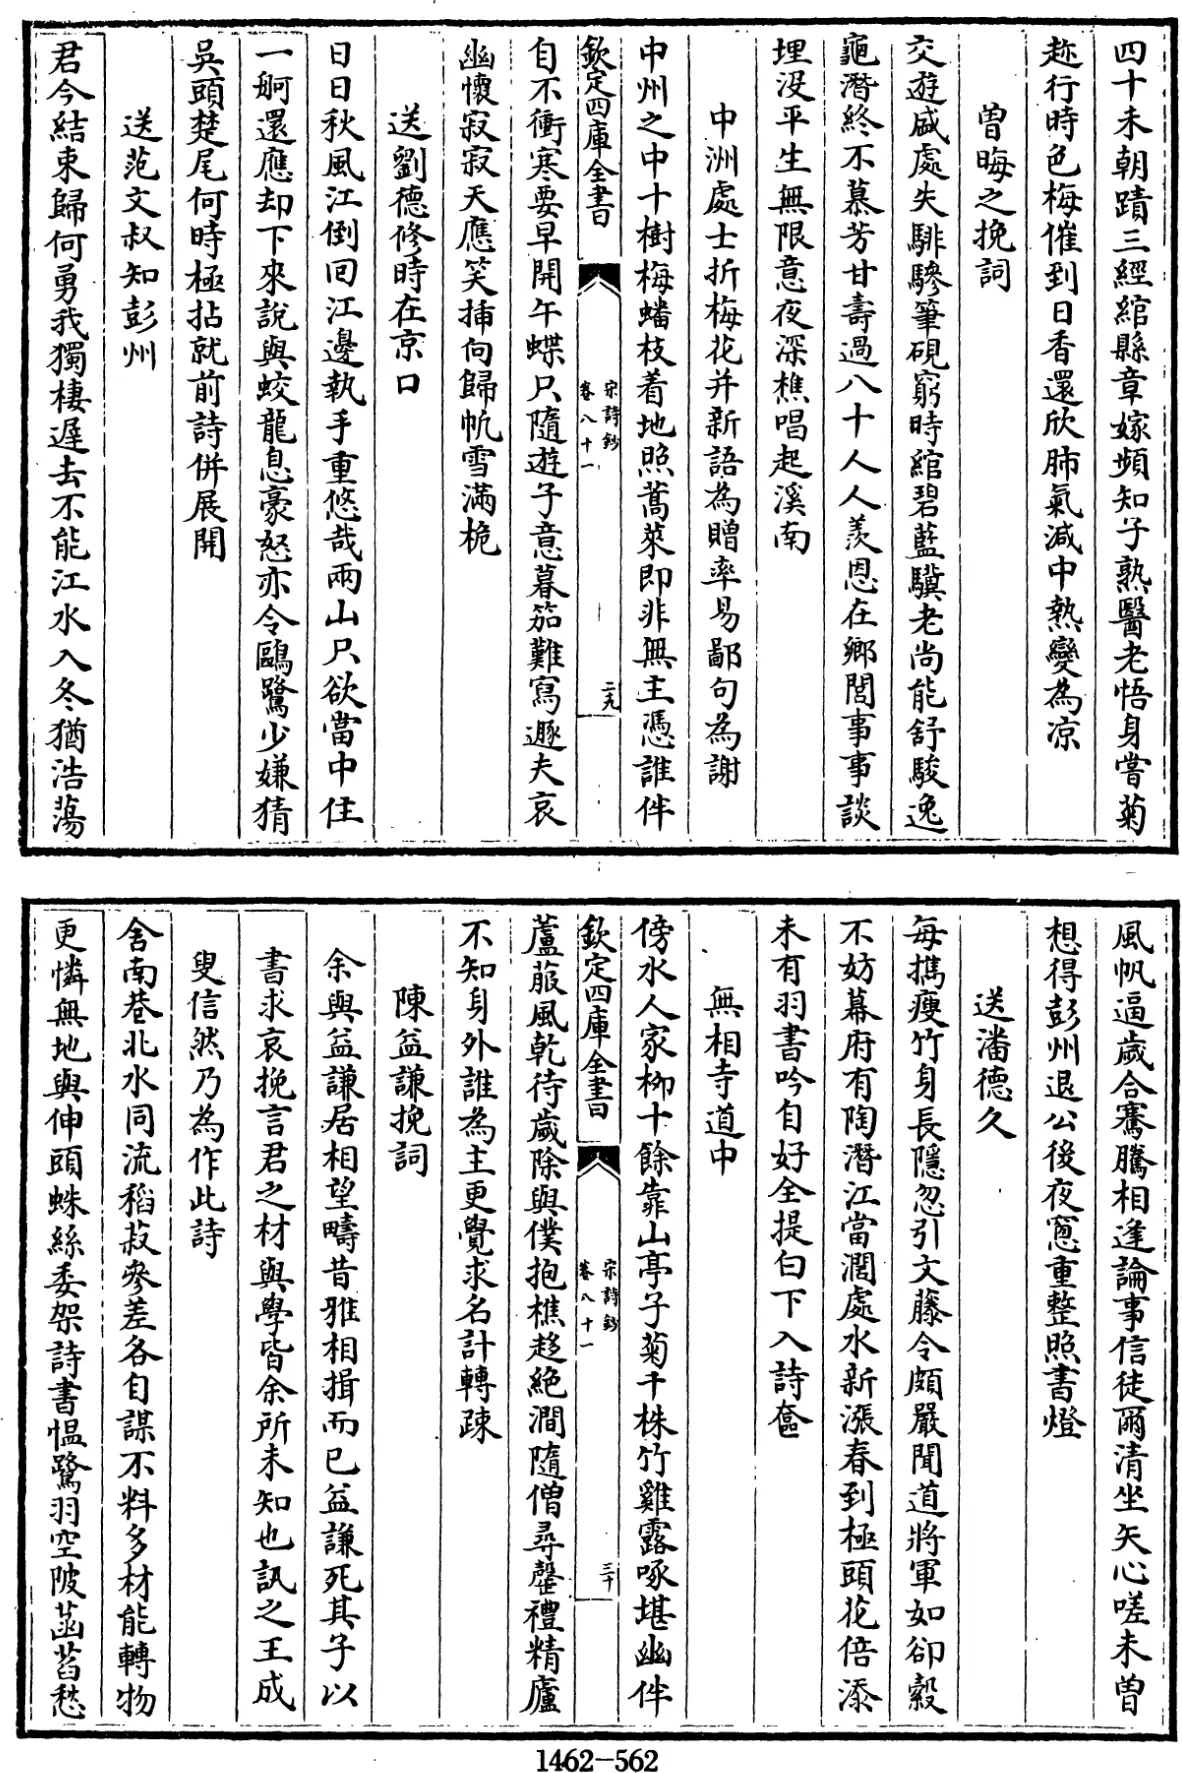 四十未朝蹟三經綰縣章嫁頻知子熟醫老悟身嘗菊
趂行時色梅催到日香還欣肺氣減中熱變為凉
曾晦之挽詞
交遊盛處失騑驂筆硯窮時綰碧藍驥老尚能舒駿逸
龜潛終不慕芳甘壽過八十人人羨恩在鄉閭事事談
埋没平生無限意夜深樵唱起溪南
中洲處士折梅花并新語為贈率易鄙句為謝
中州之中十樹梅蟠枝着地照蒿萊即非無主憑誰伴
欽定四庫全書
宋詩鈔
卷八十一
二九
自不衝寒要早開午蝶只隨遊子意暮笳難寫遯夫哀
幽懷寂寂天應笑揷向歸帆雪滿桅
送劉德修時在京口
日日秋風江倒回江邊執手重悠哉兩山只欲當中住
一舸還應却下來說與蛟龍息豪怒亦令鷗鷺少嫌猜
吳頭楚尾何時極拈就前詩併展開
送范文叔知彭州
君今結束歸何勇我獨棲遲去不能江水入冬猶浩蕩
風帆逼歲合騫騰相逢論事信徒爾清坐矢心嗟未曾
想得彭州退公後夜窻重整照書燈
送潘德久
每擕瘦竹身長隱忽引文藤令頗嚴聞道將軍如卻縠
不妨幕府有陶潛江當濶處水新漲春到極頭花倍添
未有羽書吟自好全提白下入詩奩
無相寺道中
傍水人家栁十餘靠山亭子菊千株竹雞露啄堪幽伴
欽定四庫全書
宋詩鈔
卷八十一
三十
蘆菔風乾待歲除與僕抱樵趍絶澗隨僧尋罄禮精廬
不知身外誰為主更覺求名計轉疎
陳益謙挽詞
余與益謙居相望疇昔雅相揖而已益謙死其子以
書求哀挽言君之材與學皆余所未知也訊之王成
叟信然乃為作此詩
舍南巷北水同流稻菽參差各自謀不料多材能轉物
更憐無地與伸頭蛛絲委架詩書愠鷺羽空陂菡萏愁
1462-562